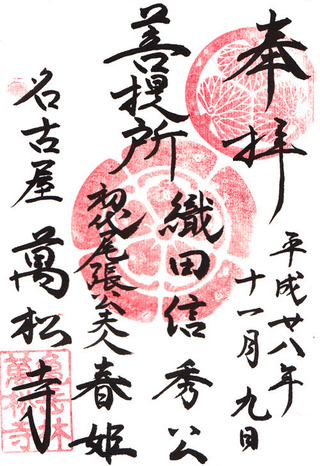 奉拝
平成廿八年
十一月九日
織田信秀公
菩提所
初代尾張公夫人春姫
名古屋 萬松寺